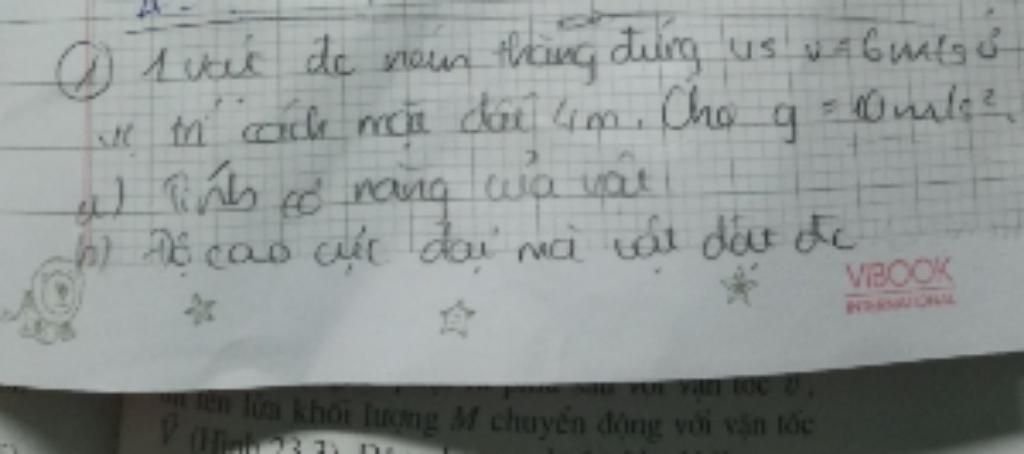 ① 1 vật đc ném thẳng đứng vs v = 6m/s ở
vị trí cách mặt đất 4m. Cho g = 10m/s².
a) Tính cơ năng của vật
b) Độ cao cực đại mà vật đạt đc
VIBOOK
INTERNATIONAL
tên lửa khối lượng M chuyển động với vận tốc
V⃗ (Hình 23.3)